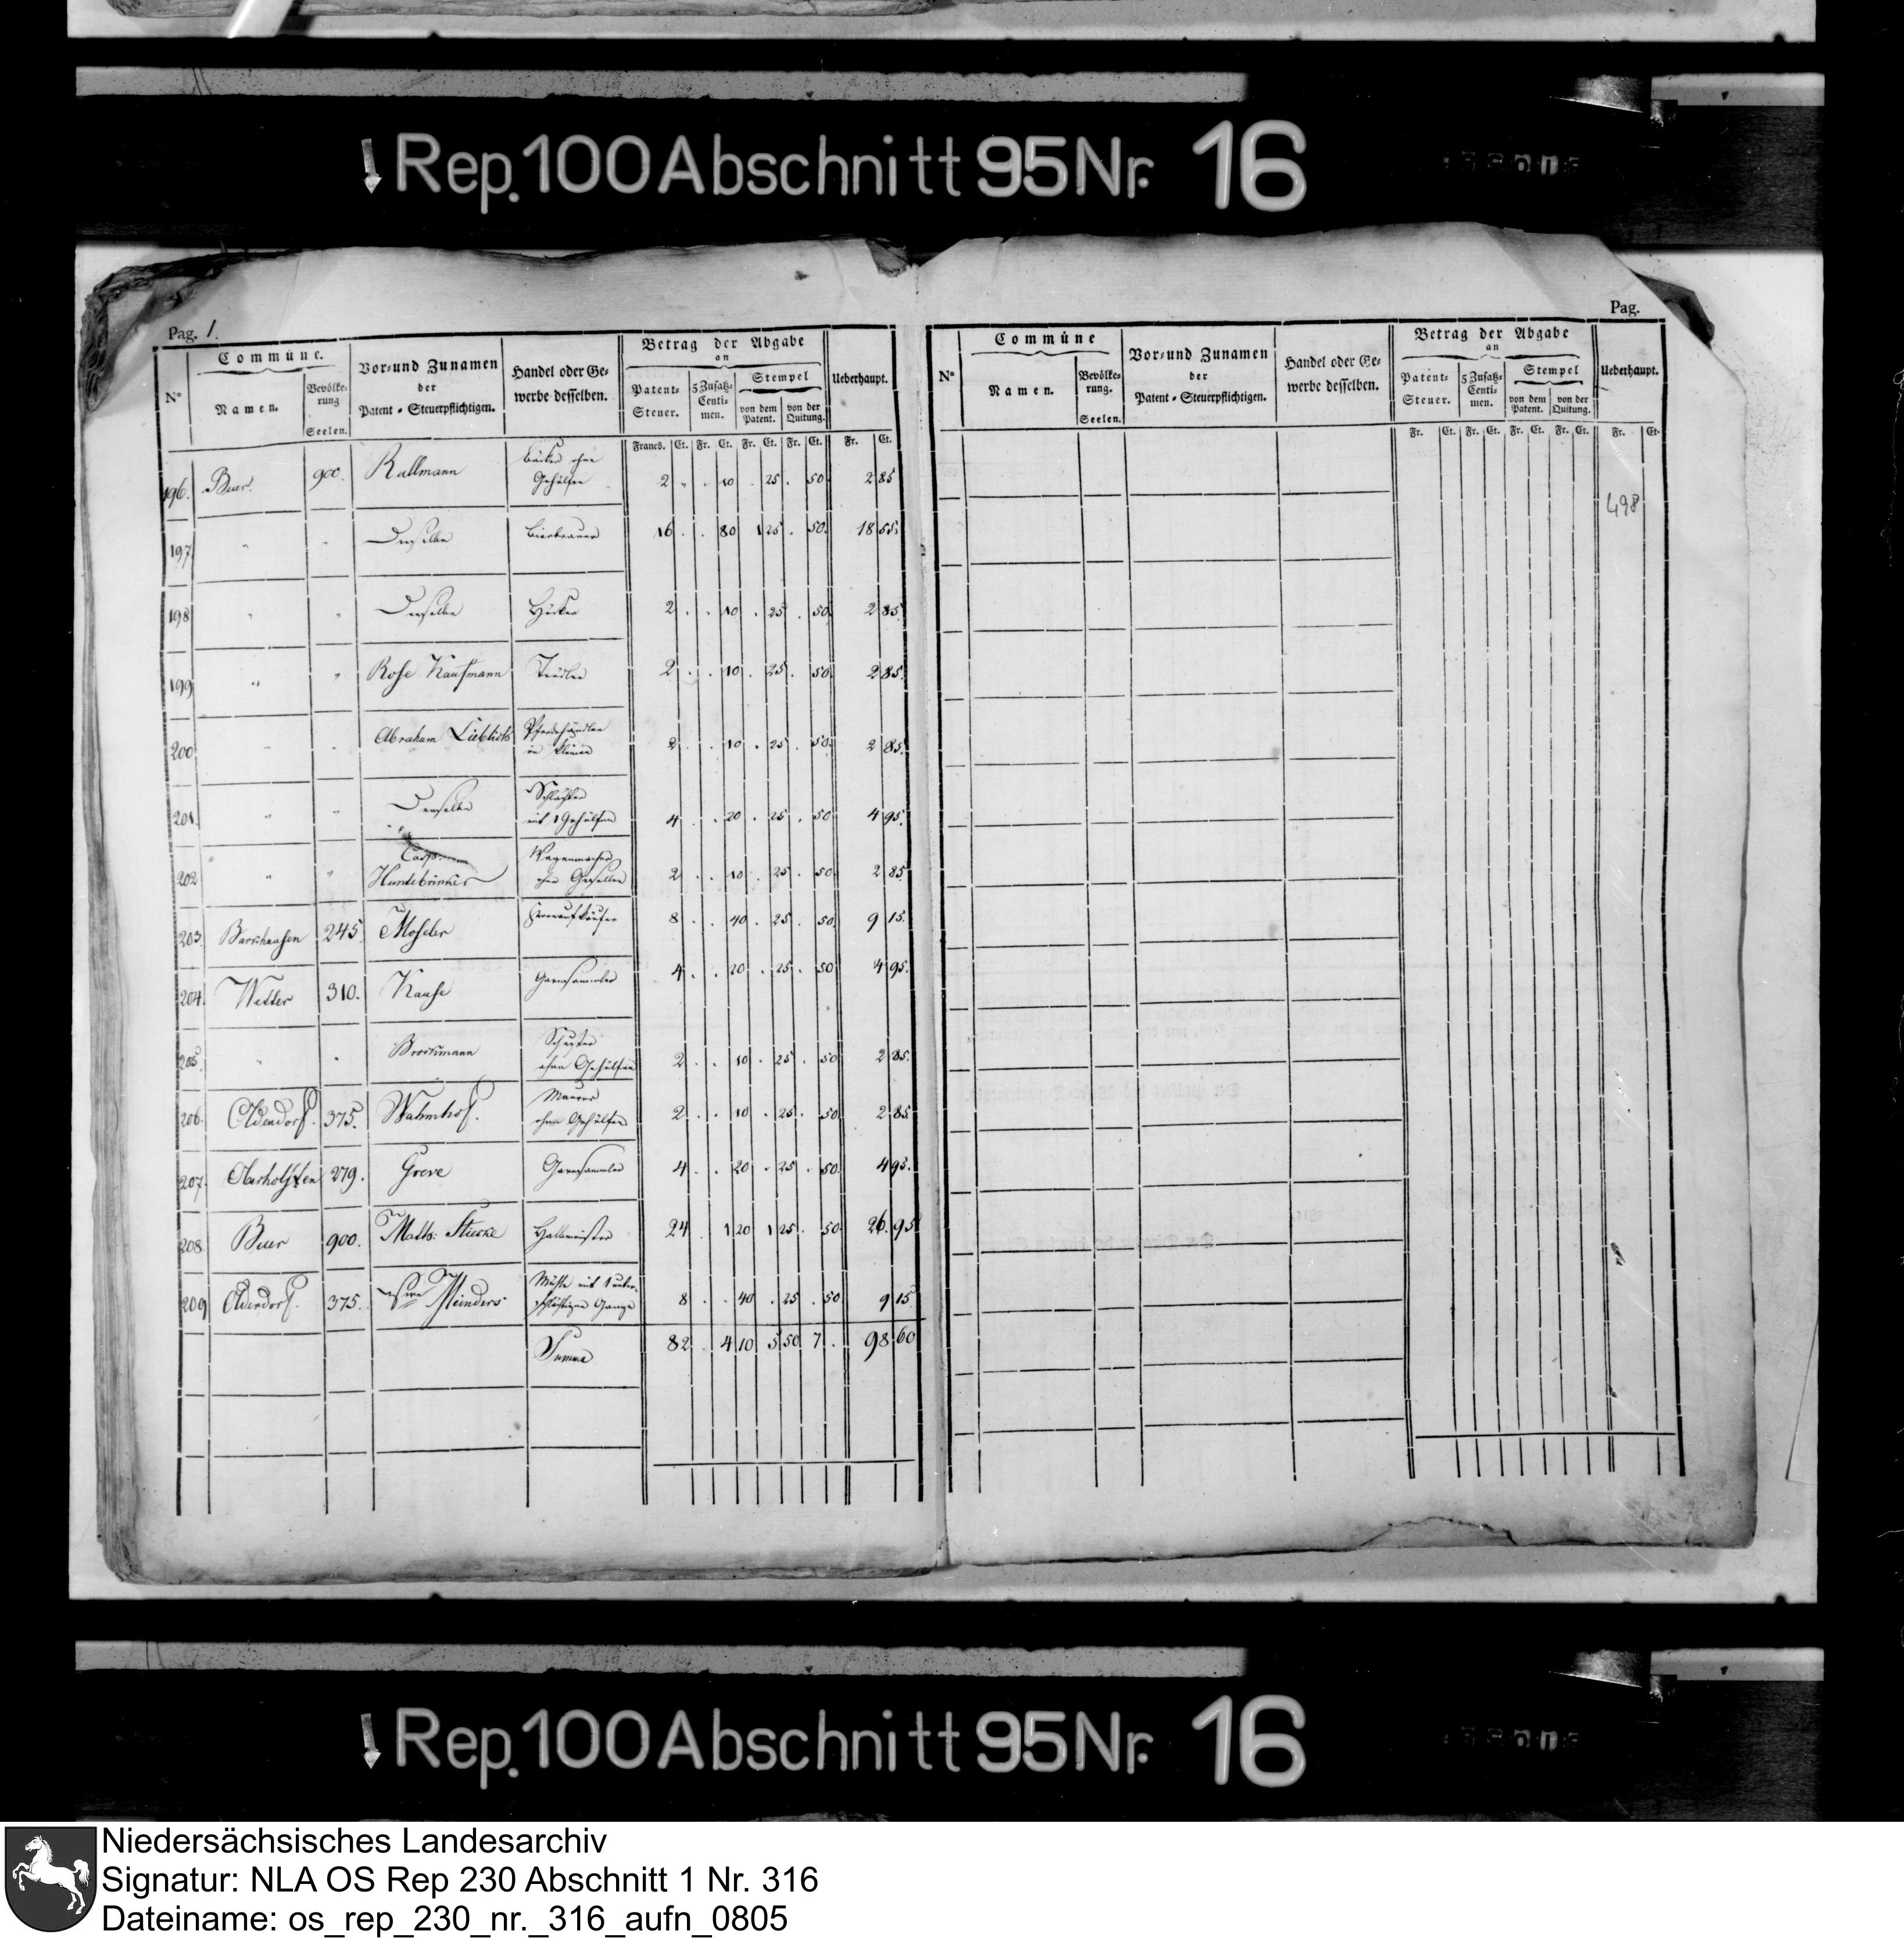 Rep. 100 Abschnitt 95 Nr. 16
Pag. 1.
Pag.
N° Commüne. Namen. Bevölke-rung Seelen. Vor- und Zunamen der Patent-Steuerpflichtigen. Handel oder Ge-werbe desselben. Betrag der Abgabe an Patent-Steuer. 5 Zusatz-Centi-men. Stempel von dem Patent. von der Quitung. Ueberhaupt.
Francs. Ct. Fr. Ct. Fr. Ct. Fr. Ct. Fr. Ct.
196. Buer. 900. Rullmann Bäcker ohne Gehülfen 2 . . 10 . 25 . 50 2 85
197 " " Derselbe Bierbrauer 16 . . 80 1 25 . 50. 18 55.
198 " " Derselbe Höcker 2 . . 10 . 25 . 50. 2 85.
199 " " Rose Kaufmann Trödler 2 . . 10 . 25 . 50. 2 85.
200 " " Abraham Liebling Pferdehändler im kleinen 2 . . 10 . 25 . 50. 2 85.
201. " " Derselbe Schlachter mit 1 Gehülfen 4 . . 20 . 25 . 50 4 95.
202 " " Casp. Wagenmacher ohne Gesellen 2 . . 10 . 25 . 50. 2 85.
203. 245. Moseler 8 . . 40 . 25 . 50. 9 15.
204. Wetter 310. Garnsammler 4 . . 20 . 25 . 50 4 95.
205. " " Brockmann Schuster ohne Gehülfen 2 . . 10 . 25 . 50 2 85.
206. Oldendorf. 375. Maurer ohne Gehülfen 2 . . 10 . 25 . 50 2 85.
207. Oberholsten 279. Greve Garnsammler 4 . . 20 . 25 . 50. 4 95.
208. Buer 900. Math: Halbmeister 24 . 1 20 1 25 . 50 26. 95
209 Oldendorf. 375. Meinders Mühle mit 1 unter-schlächtigen Gange 8 . . 40 . 25 . 50 9 15
Summa 82 . 4 10 5 50 7 . 98 60
N° Commüne Namen. Bevölke-rung. Seelen. Vor- und Zunamen der Patent-Steuerpflichtigen. Handel oder Ge-werbe desselben. Betrag der Abgabe an Patent-Steuer. 5 Zusatz-Centi-men. Stempel von dem Patent. von der Quitung. Ueberhaupt.
Fr. Ct. Fr. Ct. Fr. Ct. Fr. Ct. Fr. Ct.
498
Rep. 100 Abschnitt 95 Nr. 16
Niedersächsisches Landesarchiv
Signatur: NLA OS Rep 230 Abschnitt 1 Nr. 316
Dateiname: os_rep_230_nr._316_aufn_0805